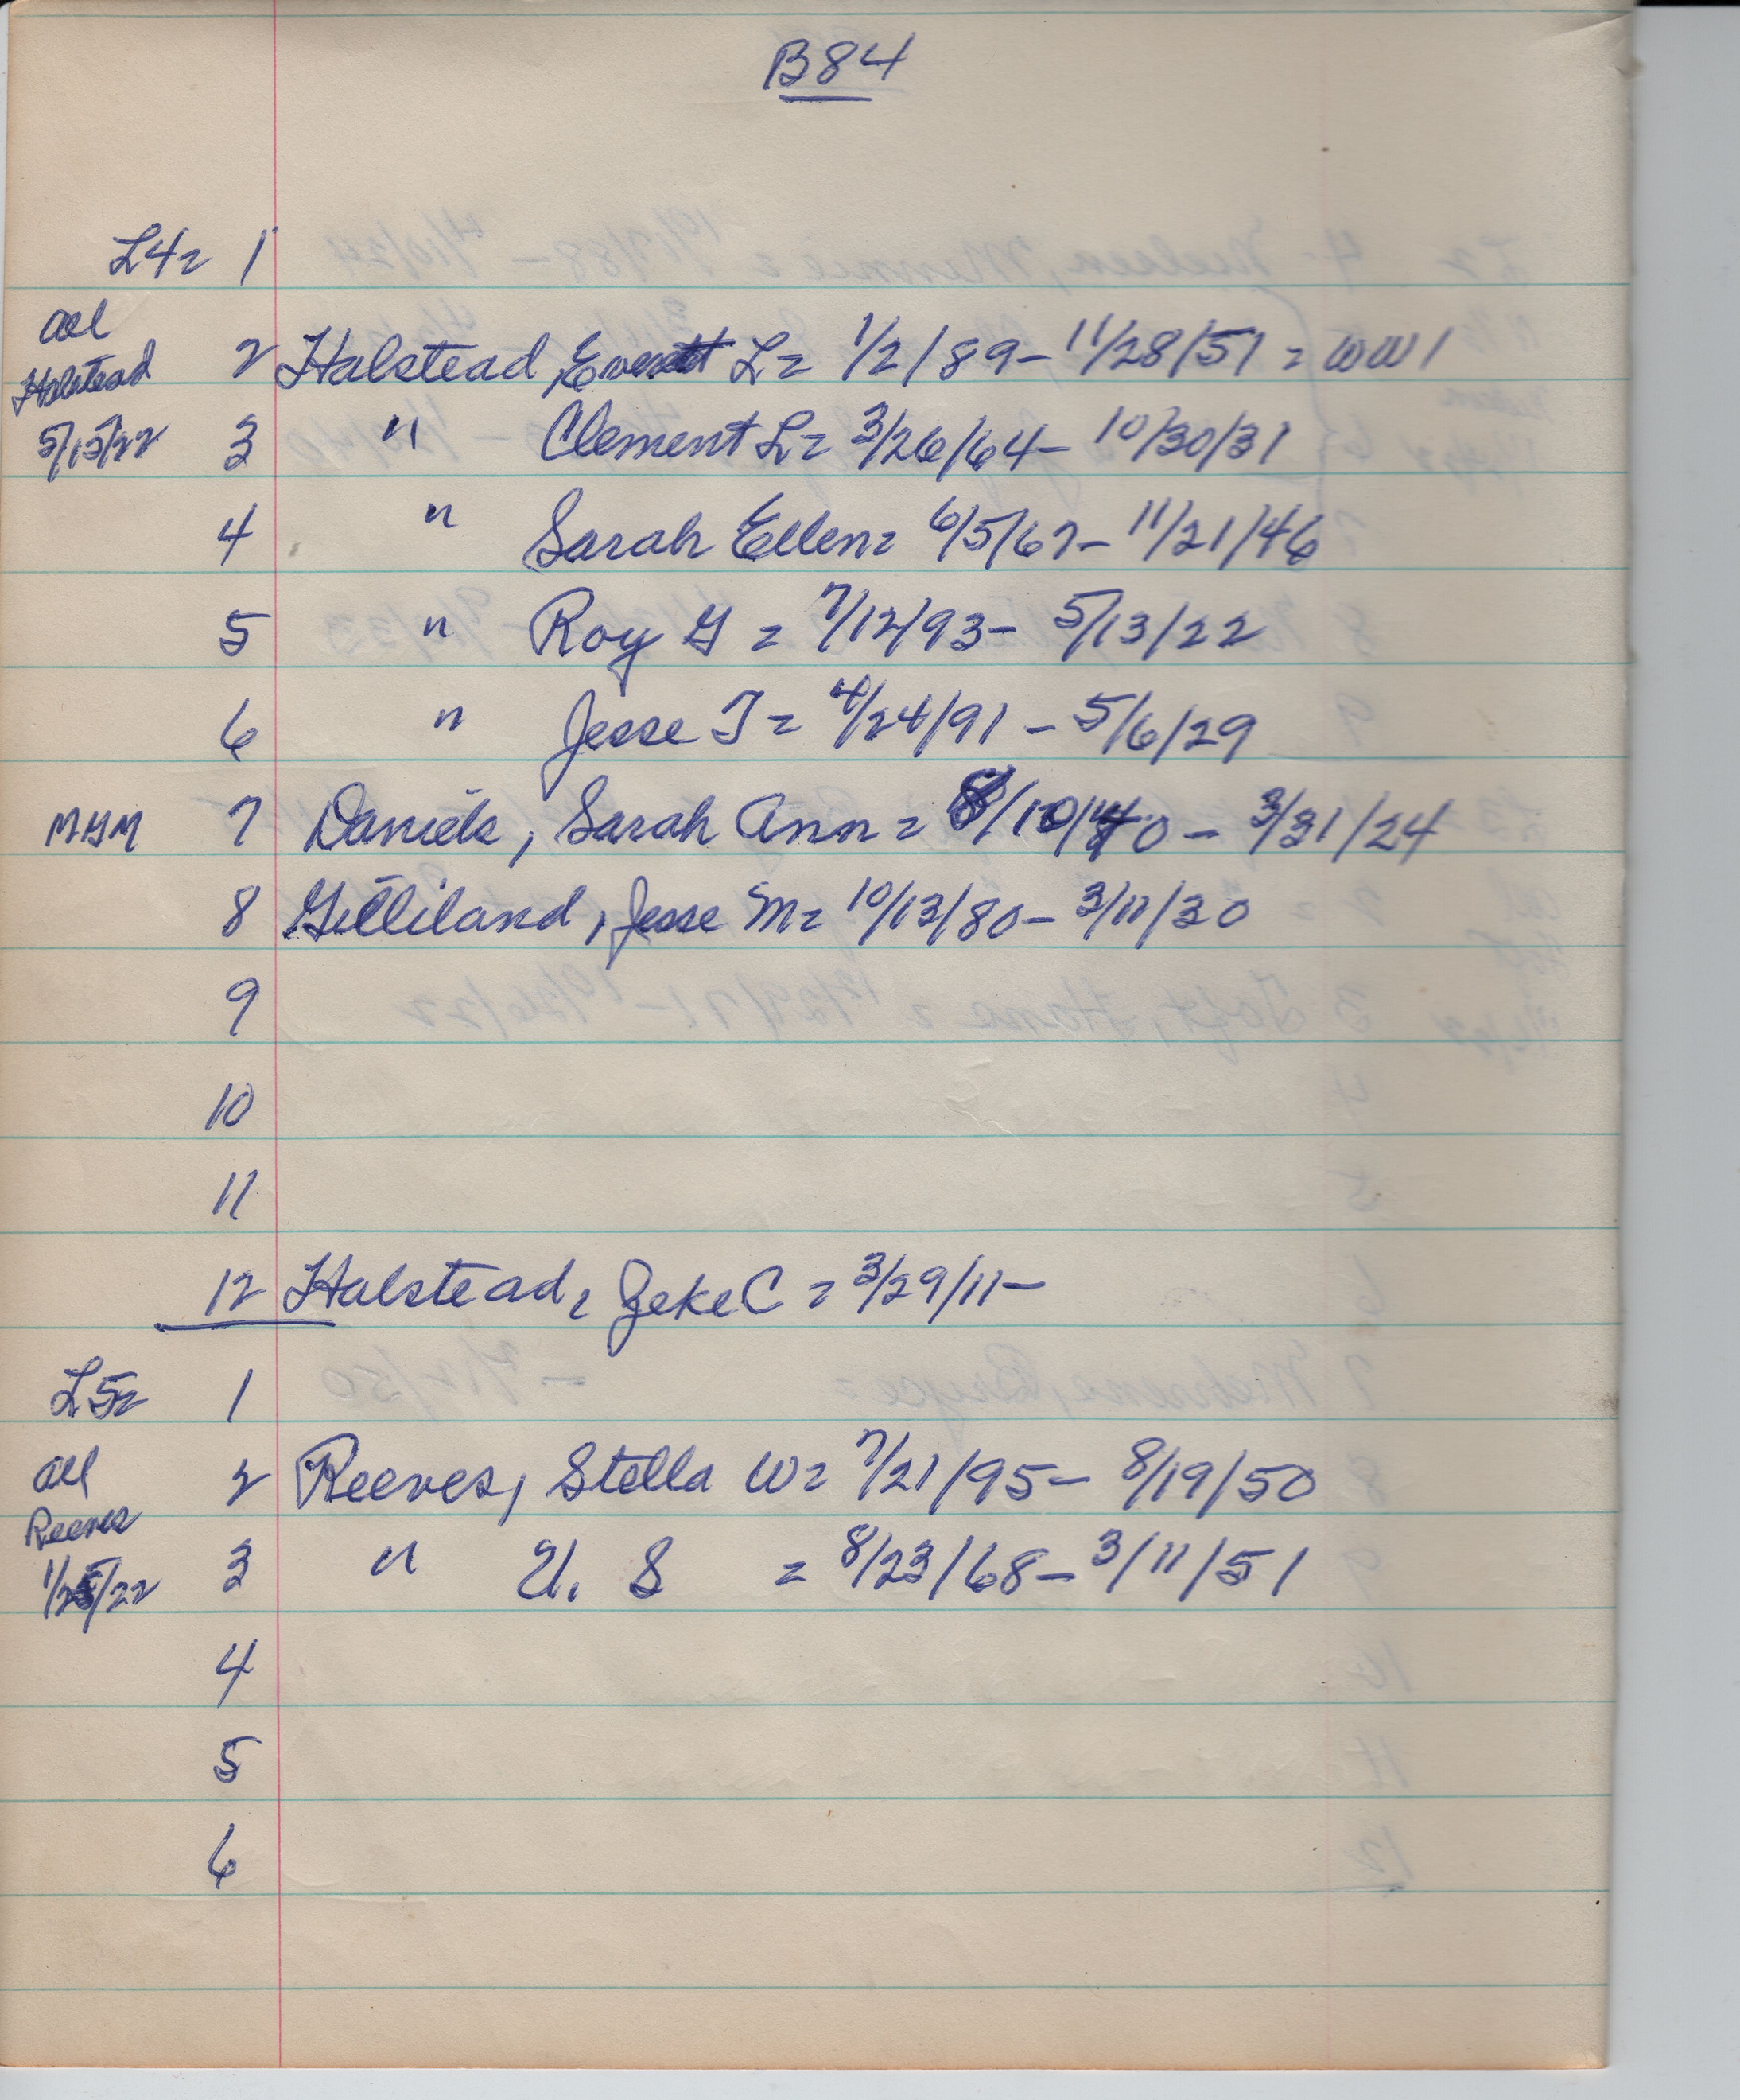 B84
L4= 1
All
Halstead 2 Halstead, Everett L= 1/2/89- 11/28/51 = WW1
5/15/22 3 " Clement L= 3/26/64- 10/30/31
4 " Sarah Ellen= 6/5/67- 11/21/46
5 " Roy G = 7/12/93- 5/13/22
6 " Jesse T= 4/24/91 - 5/6/29
MGM 7 Daniels, Sarah Ann= 8/10/40 - 3/31/24
8 Gilliland, Jesse M= 10/13/80- 3/11/30
9
10
11
12 Halstead, Zeke C = 3/29/11-
L5= 1
All 2 Reeves, Stella W= 7/21/95- 8/19/50
Reeves
1/25/22 3 " U. S = 8/23/68- 3/11/51
4
5
6